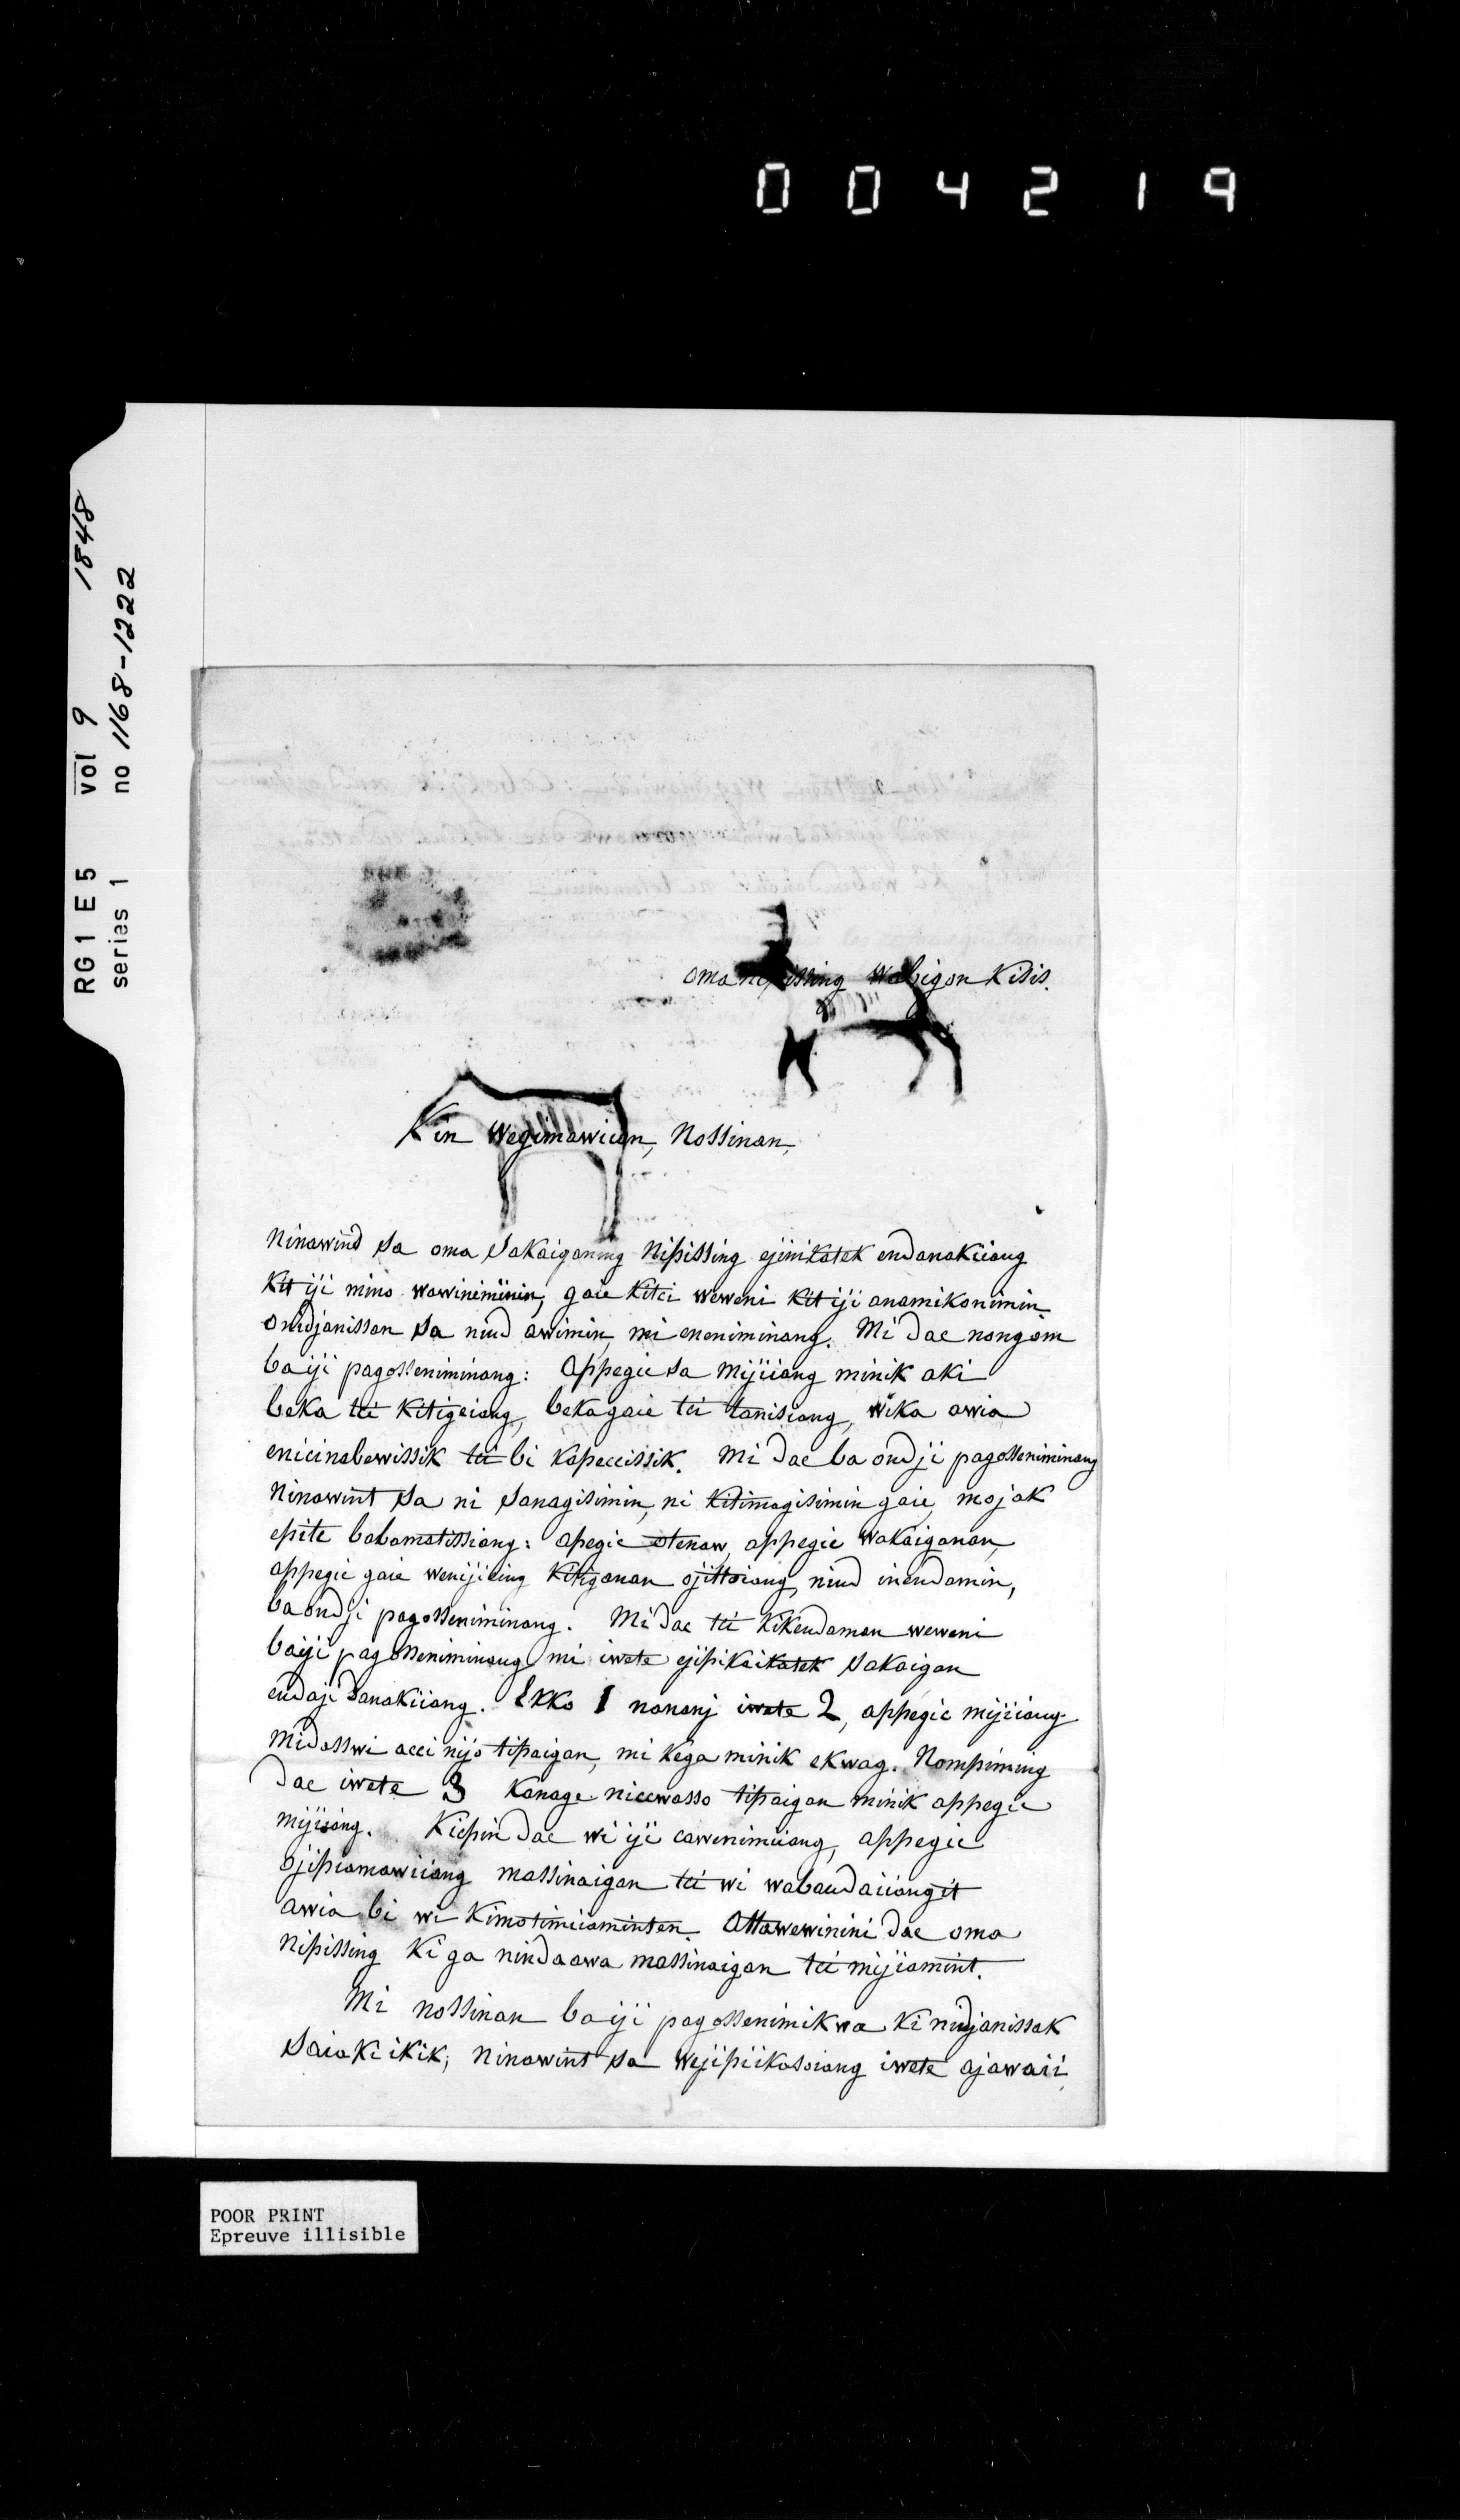 004219
RG1 E5 vol 9 1848
series 1 no 1168-1222
oma nipissing Wabigon Kisis.
Kin Wegimawiian, Nossinan,
Ninawind sa oma Sakaiganing Nipissing ejinikatek endanakiiang
Kit iji mino wawiniminin, gaie kitci weweni kit iji anamikonimin
onidjanissan sa nind awimin, mi eneniminang. Mi dac nongom
ba iji pagosseniminang: Appegic sa mijiiang minik aki
beka tci kitigeiang, beka gaie tci tanisiang, wika awia
enicinabewissik tci bi kapeccissik. Mi dac ba ondji pagosseniminang
Ninawint sa ni sanagisimin, ni kitimagisimin gaie, mojak
epite babamatissiang: apegic otenaw, appegic wakaiganan,
appegic gaie wenijicing kitiganan ojittoiang, nind inendamin,
ba ondji pagosseniminang. Mi dac tci kikendaman weweni
baiji pagosseniminang mi iwete ejipikaikatek sakaigan
endaji danakiiang. Ekko 1 nananj iwete 2, appegic mijiiang
midasswi acci nijo tipaigan, mi kega minik ekwag. Nompiming
dac iwete 3 kanage nicewasso tipaigan minik appegic
mijiiang. Kicpin dac wi iji cawenimiiang, appegic
ojipiamawiiang massinaigan tci wi wabandaiiangit
awia bi wi kimotimiiaminten. Attawewinini dac oma
Nipissing ki ga nindaawa massinaigan tci mijiamint.
Mi nossinan ba iji pagossenimikwa ki nidjanissak
Saiakiikik; Ninawint sa wejipiikasoiang iwete ajawaii
POOR PRINT
Epreuve illisible